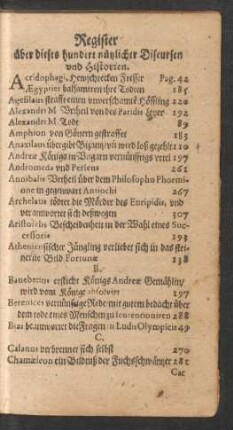 Register
über dieses hundert nützlicher Discursen
und Historien.
Acridophagi, Hewschrecken Fresser Pag. 42
Ægyptier balsamieren ihre Todten 185
Agesilaus straffe einen unverschamte Höffling 220
Alexandri M. Urtheil von des Paridis Leyer 192
Alexandri M. Todt 89
Amphion von Göttern gestraffet 183
Anaxilaus übergibt Bizantz/ un wird los gezehlt 110
Andreæ Königs in Ungarn vernünfftigs urtel 197
Andromeda und Perseus 261
Annibalis Urtheil über dem Philosopho Phormione
in gegenwart Antiochi 267
Archelaus tödtet die Mörder des Euripidis, und
verantwortet sich deßwegen 307
Aristotelis Bescheidenheit in der Wahl eines Successoris
193
Atheniensischer Jüngling verliebet sich in das steinerne
Bild Fortunæ 238
B.
Bancbanus ersticht Königs Andreæ Gemählin/
wird vom Könige absolvirt 197
Berenices vernünfftige Rede mit gutem bedacht über
dem tode eines Menschen zu 288
Bias beantwortet die Fragen in Ludis Olympicis 49
C.
Calanus verbrennet sich selbst 270
Chamæleon ein Bildnuß der Fuchsschwäntzer 181
Cat